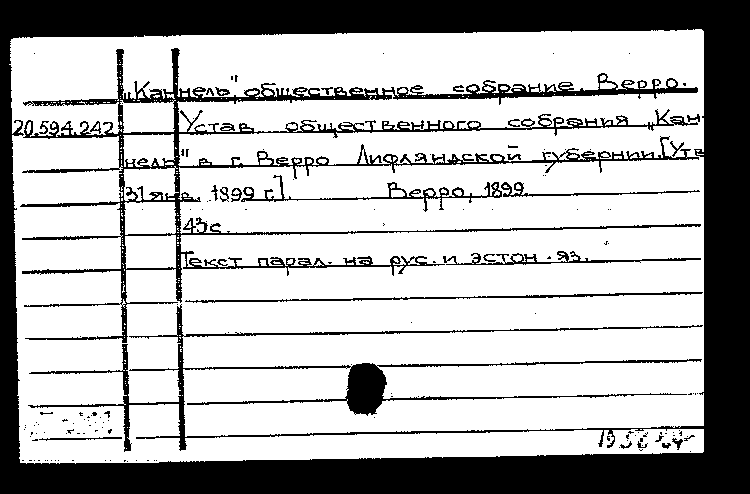 „Каннель", общественное собрание. Верро.
20.594.242 Устав общественного собрания „Кан-
нель" в г. Верро Лифляндской губернии. [Утв
31 янв. 1899 г.]. Верро, 1899.
43 с.
Текст парал. на рус. и эстон. яз.